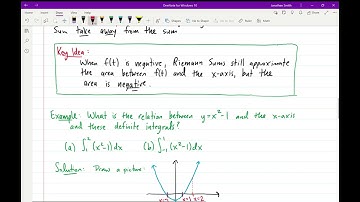 OneNote for Windows 10
Sum take away from the sum
Key Idea:
When f(t) is negative, Riemann Sums still approximate
the area between f(t) and the x-axis, but the
area is negative.
Example: What is the relation between y=x²-1 and the x-axis
and these definite integrals?
(a) ∫₁² (x²-1)dx (b) ∫₋₁¹ (x²-1)dx
Solution: Draw a picture:
x=1 x=2